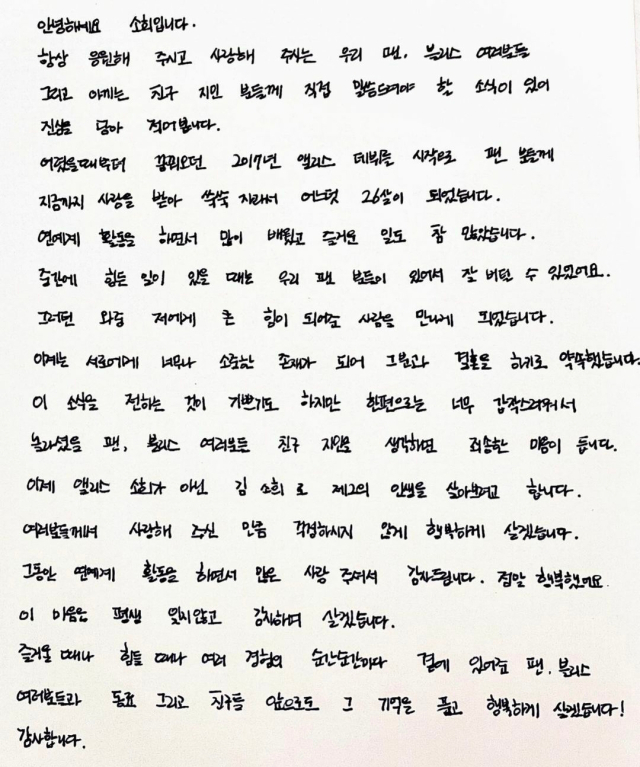 안녕하세요 소희입니다.
항상 응원해 주시고 사랑해 주시는 우리 팬, 블리스 여러분들
그리고 아끼는 친구 지인 분들께 직접 말씀드려야 할 소식이 있어
진심을 담아 적어봅니다.
어렸을때부터 꿈꿔오던 2017년 앨리스 데뷔를 시작으로 팬 분들께
지금까지 사랑을 받아 쑥쑥 자라서 어느덧 26살이 되었습니다.
연예계 활동을 하면서 많이 배웠고 즐거운 일도 참 많았습니다.
중간에 힘든 일이 있을 때는 우리 팬 분들이 있어서 잘 버틸 수 있었어요.
그러던 와중 저에게 큰 힘이 되어준 사람을 만나게 되었습니다.
이제는 서로에게 너무나 소중한 존재가 되어 그분과 결혼을 하기로 약속했습니다
이 소식을 전하는 것이 기쁘기도 하지만 한편으로는 너무 갑작스러워서
놀라셨을 팬, 블리스 여러분들 친구 지인을 생각하면 죄송한 마음이 듭니다.
이제 앨리스 소희가 아닌 김소희로 제2의 인생을 살아보려고 합니다.
여러분들께서 사랑해 주신 만큼 걱정하시지 않게 행복하게 살겠습니다.
그동안 연예계 활동을 하면서 많은 사랑 주셔서 감사드립니다. 정말 행복했어요
이 마음은 평생 잊지않고 감사하며 살겠습니다.
즐거울 때나 힘들 때나 여러 경험의 순간순간마다 곁에 있어준 팬, 블리스
여러분들과 동료 그리고 친구들 앞으로도 그 기억을 품고 행복하게 살겠습니다!
감사합니다.